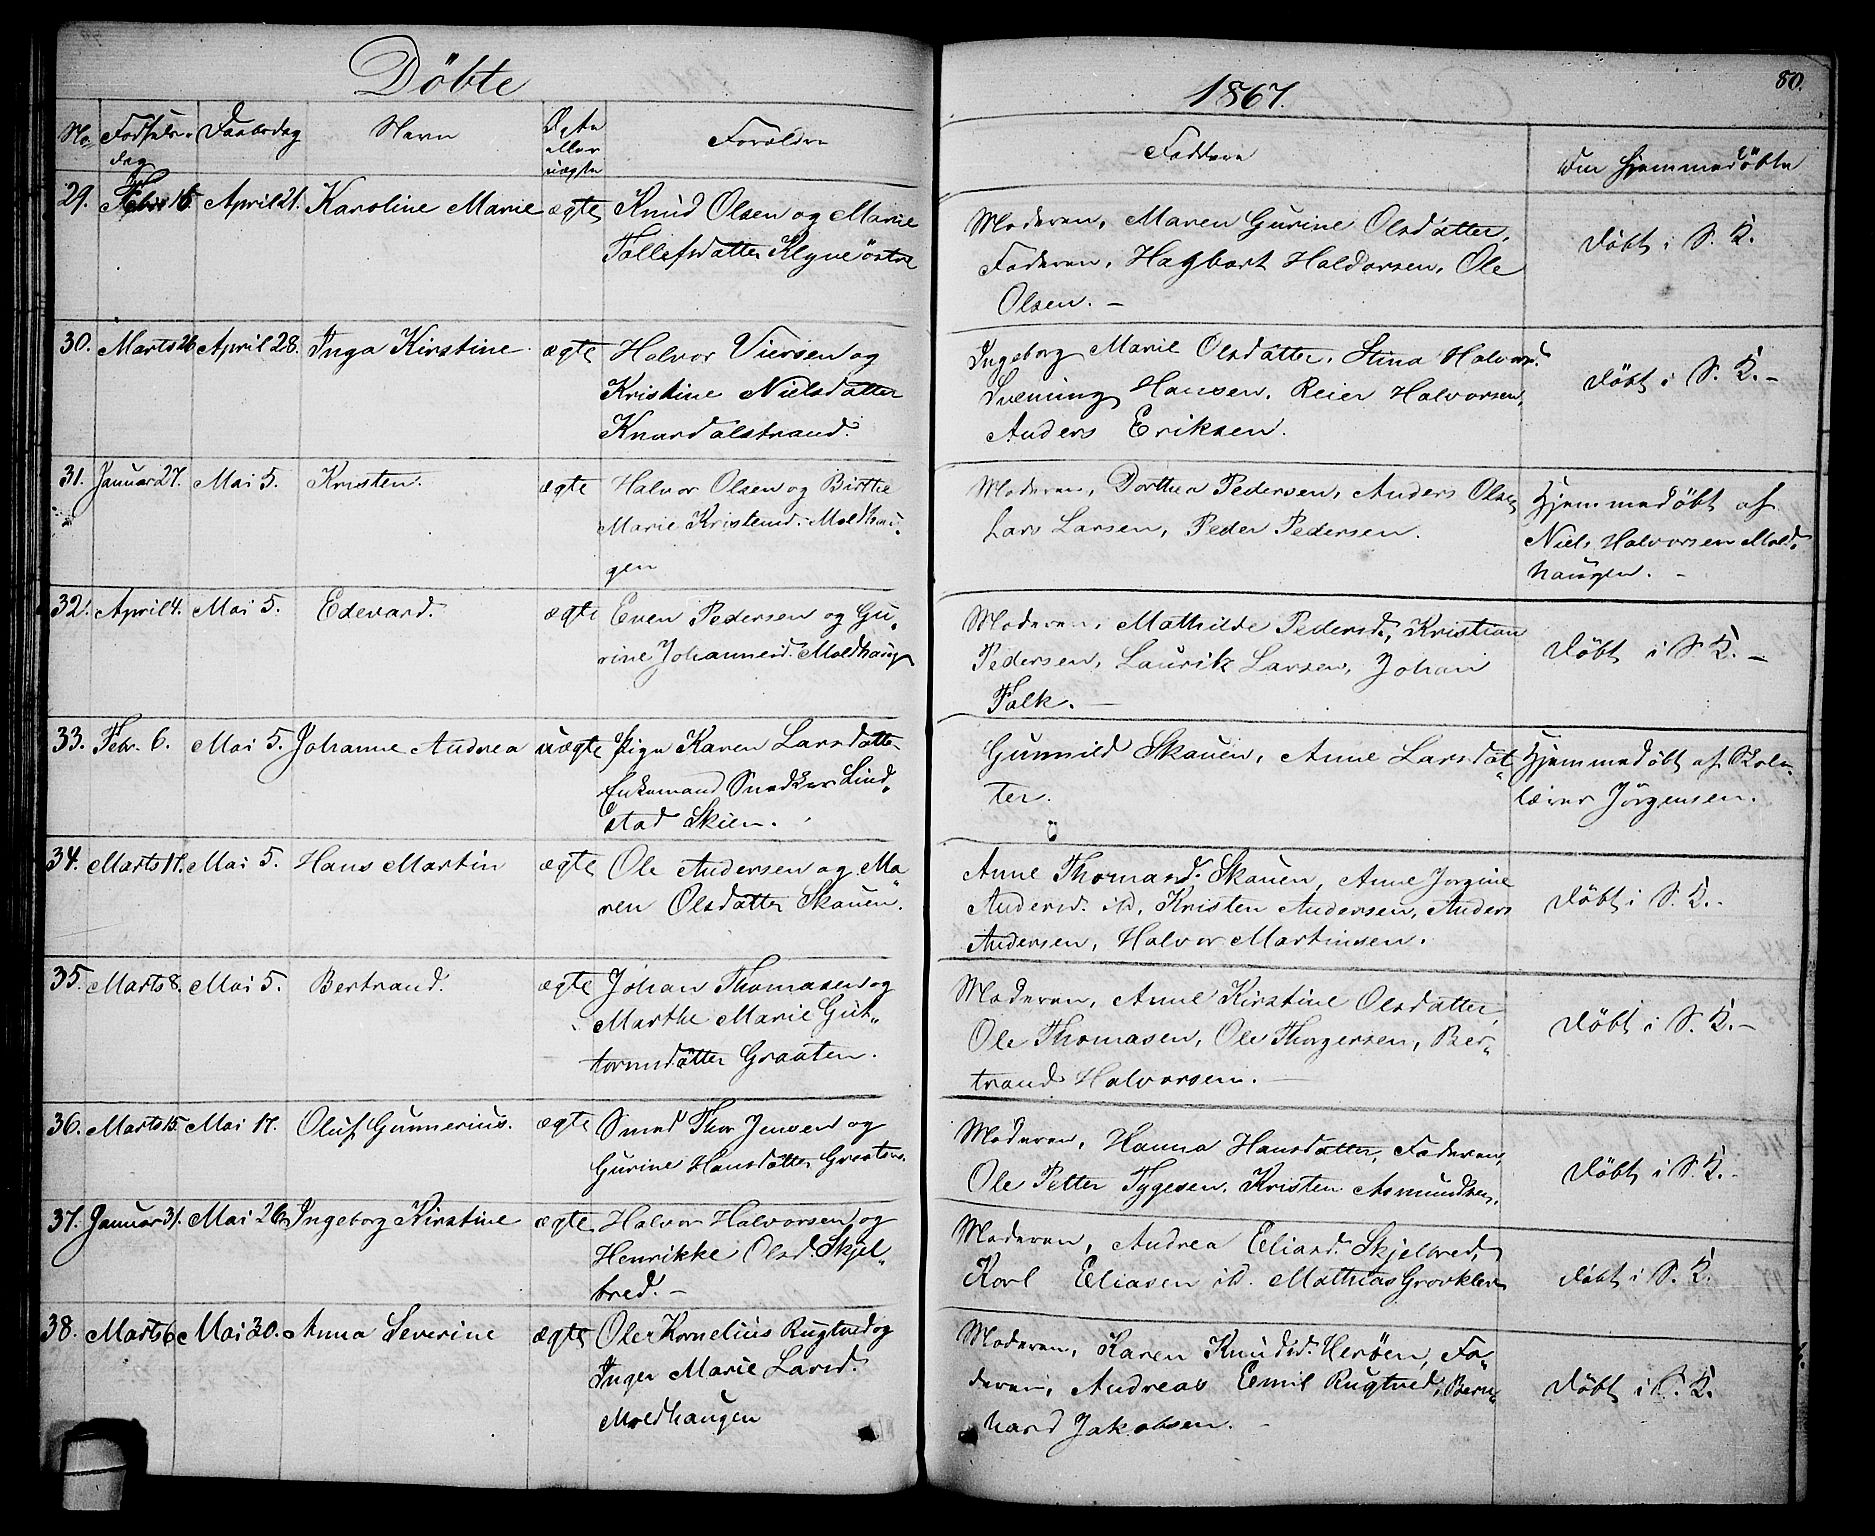 Döbte
1867.
80.
No Fødsels- Daabsdag Navn Ægte Forældre Faddere Om Hjemmedöbte
dag eller
uægte
29. Febr 16 April 21. Karoline Marie ægte Knud Olsen og Marie
Tollefsdatter Klyve östre
Moderen, Maren Gurine Olsdatter,
Faderen, Hagbart Haldorsen, Ole
Olsen. –
Döbt i S. K.
30. Marts 26 April 28. Inga Kirstine ægte Halvor Viersen og
Kristine Nielsdatter
Knardalstrand.
Ingeborg Marie Olsdatter, Stina Halvorsd.
Svenning Hansen, Reier Halvorsen,
Anders Eriksen.
Döbt i S. K. –
31. Januar 27. Mai 5. Kristen. ægte Halvor Olsen og Birthe
Marie Kristensd. Moldhau„
gen
Moderen, Dorthea Pedersen, Anders Olsen
Lars Larsen, Peder Pedersen.
Hjemmedöbt af
Niels Halvorsen Mold„
haugen. –
32. April 4. Mai 5. Edevard. ægte Even Pedersen og Gu„
rine Johannesd. Moldhaug
Moderen, Mathilde Pedersd., Kristian
Pedersen, Laurik Larsen, Johan
Falk. –
Döbt i S. K. –
33. Febr. 6. Mai 5. Johanne Andrea uægte Pige Karen Larsdatter
Enkemand Snedker Lind„
stad Skien.
Gunnild Skauen, Anne Larsdat„
ter.
Hjemmedöbt af Skole„
lærer Jörgensen.
34. Marts 17. Mai 5. Hans Martin ægte Ole Andersen og Ma„
ren Olsdatter Skauen.
Anne Thomasd. Skauen, Anne Jorgine
Andersd. ibd, Kristen Andersen, Anders
Andersen, Halvor Martinsen.
Döbt i S. K. –
35. Marts 8. Mai 5. Bertrand. ægte Johan Thomasen og
Marthe Marie Gut„
tormsdatter Graaten.
Moderen, Anne Kirstine Olsdatter,
Ole Thomasen, Ole Thorgersen, Ber„
trand Halvorsen. –
Döbt i S. K. –
36. Marts 15. Mai 17. Oluf Gunnerius. ægte Smed Thor Jensen og
Gurine Hansdatter Graaten.
Moderen, Hanna Hansdatter, Faderen,
Ole Petter Tygesen, Kristen Asmundsen.
Döbt i S. K. –
37. Januar 31. Mai 26. Ingeborg Kirstine ægte Halvor Halvorsen og
Henrikke Olsd. Skjel„
bred. –
Moderen, Andrea Eliasd. Skjelbred,
Karl Eliasen ibd. Mathias Grovklev
Döbt i S. K.
38. Marts 6 Mai 30. Anna Severine ægte Ole Kornelius Rugtved og
Inger Marie Larsd.
Moldhaugen
Moderen, Karen Knudsd. Herøen, Fa„
deren, Andreas Emil Rugtved, Bern„
hard Jakobsen. –
Döbt i S. K.